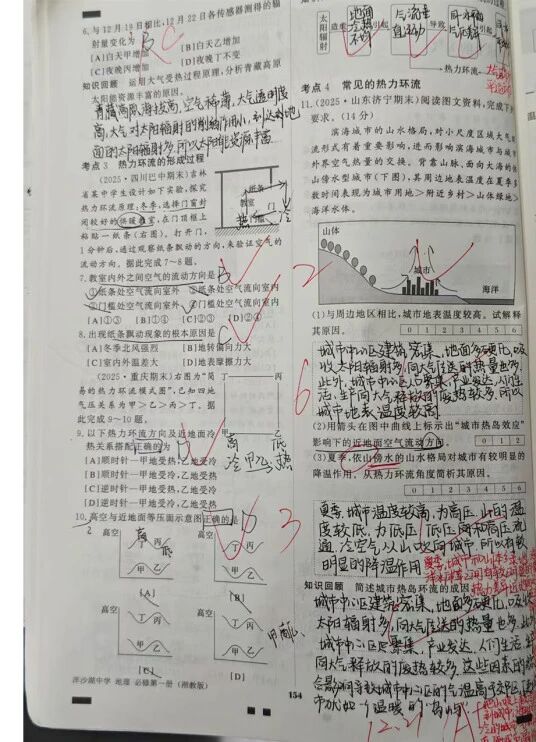 6.与12月19日相比,12月22日各传感器测得的辐
射量变化为 B C
[A]白天甲增加 [B]白天乙增加
[C]夜晚丙增加 [D]夜晚丁增加
知识回顾 运用大气受热过程原理,分析青藏高原
太阳能资源丰富的原因。
青藏高原海拔高,空气稀薄,大气透明度
高,大气对太阳辐射的削弱作用小,到达地
面的太阳辐射多,所以太阳能资源丰富
考点3 热力环流的形成过程
(2025·四川巴中期末)吉林
省某中学生设计如下实验,探究
热力环流原理:冬季,选择门窗封
闭较好的供暖教室,在门顶框上
粘贴一纸条(右图)。打开门,
1分钟后,通过观察纸条飘动的方向,来验证空气的
流动方向。据此完成7~8题。
纸条
教室
门
门槛
热 冷
7.教室内外之间空气的流动方向是 B
①纸条处空气流向室外 ②纸条处空气流向室内
③门槛处空气流向室外 ④门槛处空气流向室内
[A]①③ [B]①④ [C]②③ [D]②④
2
8.出现纸条飘动现象的根本原因是
[A]冬季北风强烈 [B]地转偏向力大
[C]室内外温差大 [D]地表摩擦力大
(2025·重庆期末)右图为“简
易的热力环流模式图”,已知四地
气压关系为甲>乙>丙>丁。据
此完成9~10题。
丁 丙
甲 乙
高 低
冷 热
9.以下热力环流方向及近地面冷
热关系搭配正确的为
[A]顺时针—甲地受热,乙地受冷
[B]顺时针—甲地受冷,乙地受热
[C]逆时针—甲地受热,乙地受冷
[D]逆时针—甲地受冷,乙地受热
10.高空与近地面等压面示意图正确的是 D
3
高空 高空
丁 丙
甲 乙
[A] [B]
高空 高空
丁 丙 丁 丙
甲 乙 甲 乙
[C] [D]
洋沙湖中学 地理 必修第一册(湘教版)
154
太阳辐射
造成
地面冷热不均
导致
热力环流
考点4 常见的热力环流
11.(2025·山东济宁期末)阅读图文资料,完成下列
要求。(14分)
滨海城市的山水格局,对小尺度区域大气
流形式有着重要影响,进而影响滨海城市与城
外界空气热量的交换。背靠山脉,面向大海的依
山傍水型城市(下图),其周边地表温度在夏季多
数时间表现为城市用地>附近乡村>山体绿地>
海洋水体。
山体
城市
海洋
(1)与周边地区相比,城市地表温度较高。试解释
其原因。 0 1 2 3 4 5 6
城市中心区建筑密集,地面多硬化,吸
收太阳辐射多,向大气传送的热量也多,
此外,城市中心区人口密集,产业发达,人们生
活、生产向大气释放的废热较多,所以
城市地表温度较高
6
(2)用箭头在图中曲线上标示出“城市热岛效应”
影响下的近地面空气流动方向。 0 1 2
(3)夏季,依山傍水的山水格局对城市有较明显的
降温作用,从热力环流角度简析其原因。
0 1 2 3 4 5 6
夏季,城市温度较高,为高压,山的温
度较低,为低压,低压向和高压流
通,冷空气从山吹向城市,所以有较
明显的降温作用
知识回顾 简述城市热岛环流的成因。
城市中心区建筑密集,地面多硬化,吸收
太阳辐射多,向大气传送的热量也多,此外
城市中心区人口密集,产业发达,人们生活、生产
向大气释放的废热较多,这些因素的综
合影响导致城市中心区的气温高于郊区,使城
市犹如一个温暖的“热岛”
12.21